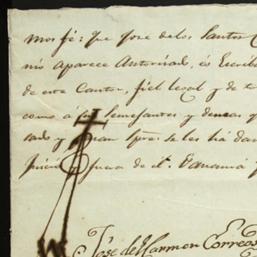 mos fé: que José de los Santos
nis aparece Autorizado, es Escrib
de este Canton, fiel legal y de
como á sus semejantes y demas q
sado y firman spre. se les ha da
juicio y fuera de el. Panamá
José de Harmon Correos